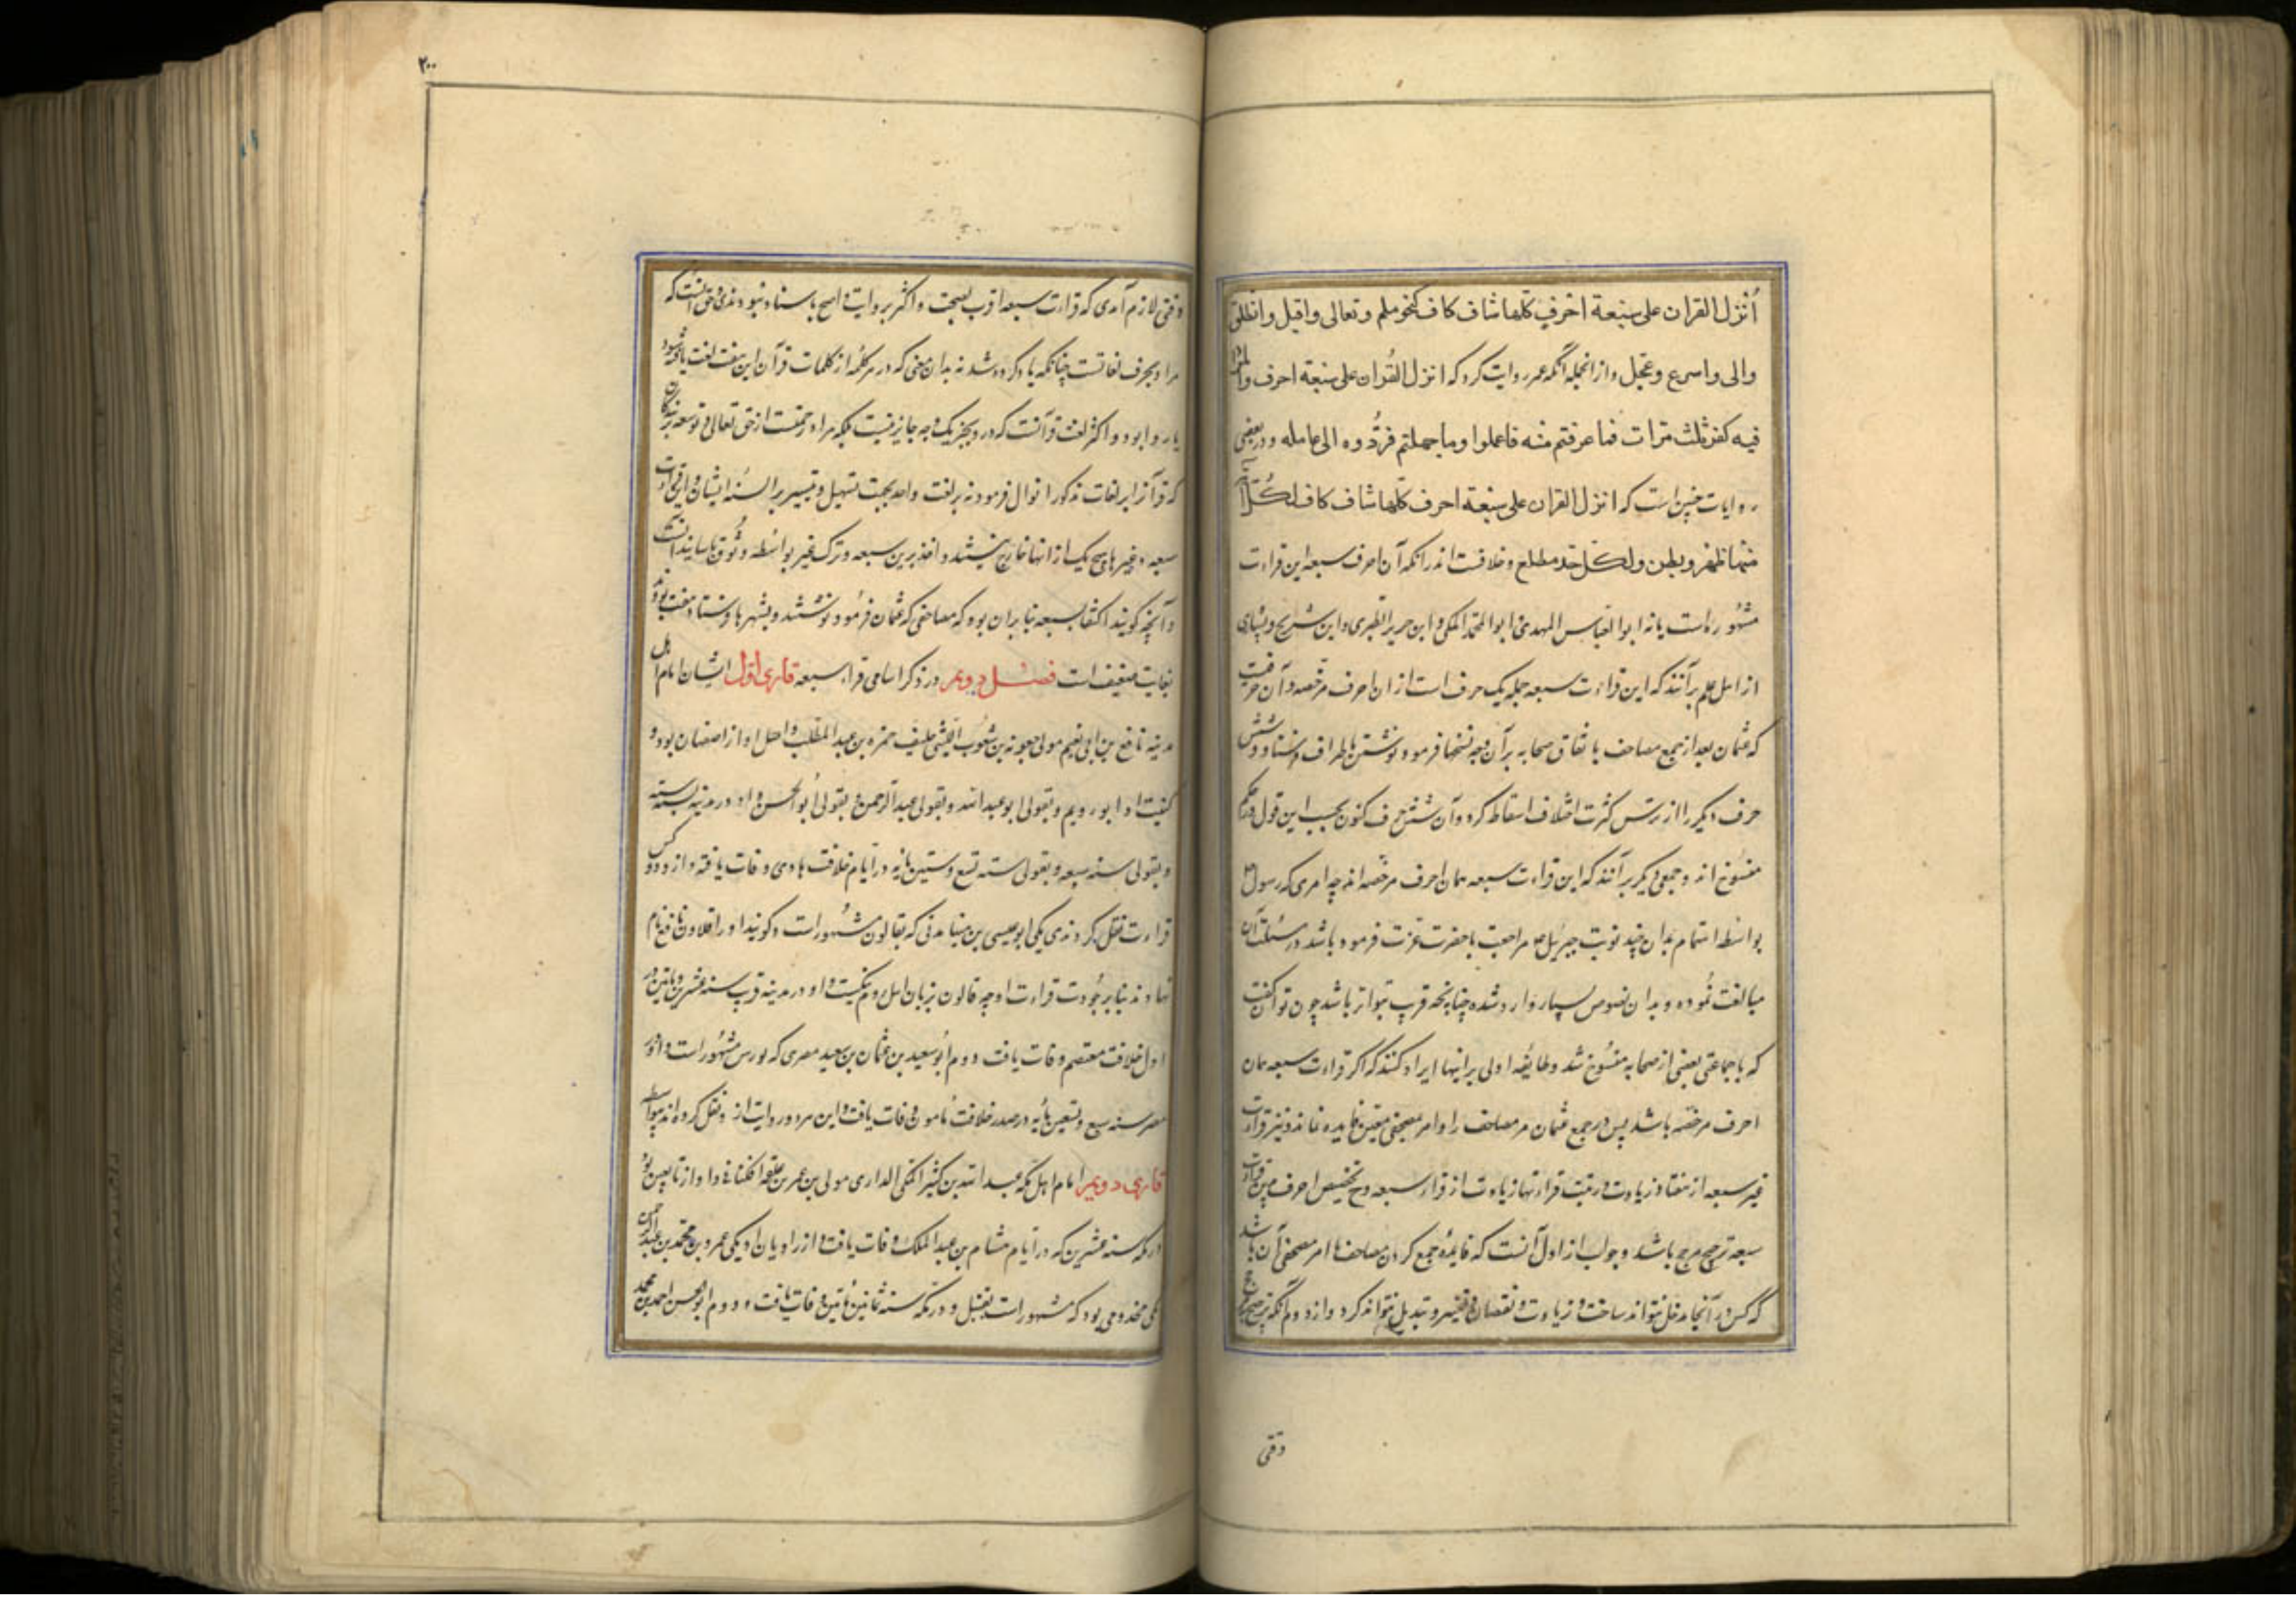 أنزل القران على سبعة احرف كلها شاف كاف كنحو هلم وتعالى واقبل وانطلق
والى واسرع وعجل و از انجمله آنكه عمر روایت کرد که انزل القران على سبعة احرف والمراء
فيه كفر ثلث مرات فما عرفتم منه فاعملوا وما جهلتم فردوه الى عامله و در بعضی
روایات چنین است که انزل القران على سبعة احرف كلها شاف كاف لكل آية
منها ظهر وبطن ولكل حد مطلع و خلافست اندرانکه آن احرف سبعه این قراءت
مشهوره است یا نه ابو العباس المهدی و ابن جریر الطبری و ابن شریح و بسیاری
از اهل علم برآنند که این قراءت سبعه جمله یک حرف است از ان احرف مرخصه و آن حرفیست
که عثمان بعد از جمع مصاحف باتفاق صحابه برآن وجه نسخها فرمود نوشتن و باطراف فرستاد و شش
حرف دیگر را از ترس کثرت اختلاف اسقاط کرد و آن شش حرف کنون بحسب این قول در حکم
منسوخ اند و جمعی دیگر برآنند که این قراءت سبعه همان احرف مرخصه اند چه امری که رسول
بواسطه اهتمام بدان چند نوبت جبرئیل مراجعت با حضرت عزت فرموده باشد و در مسئلت آن
مبالغت نموده و بدان نصوص بسیار وارد شده چنانچه قریب بتواتر باشد چون توان گفت
که باجماعتی بعضی از صحابه منسوخ شد و طایفه اولی برانها ایراد کنند که اگر قراءت سبعه همان
احرف مرخصه باشد پس در جمع عثمان مر مصاحف را و امر بمصحفی معین فایده نماند و نیز قراءت
غیر سبعه از هفتاد زیادت و رتبت قراء آنها زیادت از قراء سبعه و ح تخصیص احرف بدین قراءت
سبعه ترجیح مرجح باشد و جواب از اول آنست که فایده جمع کردن مصاحف و امر بمصحفی آن باشد
که کس در آنجا مدخل نتواند ساخت و زیادت و نقصان و تغییر و تبدیل نتواند کرد و از دوم آنکه ترجیح
وقتی
۲۰۰
وقتی لازم آمدی که قراءت سبعه اقرب بصحت و اکثر بروایت و اصح باسناد نبودندی و حق آنست که
مراد بحرف لغاتست چنانکه یاد کرده شد نه بدان معنی که در هر کلمه از کلمات قرآن این هفت لغت یافته شود
یا روا بود و اکثر لغت قرآنست که در و بجز یک وجه جایز نیست بلکه مراد رخصتست از حق تعالی و توسعه بر بندگان
که قرآن را بر لغات مذکور انزال فرمود نه بر لغت واحد بجهت تسهیل و تیسیر بر السنه ایشان و این قراءت
سبعه و غیرها هیچ یک از انها خارج نیستند و اخذ برین سبعه و ترک غیر بواسطه وثوق باسانید آنست
و آنچه گویند اکتفا بسبعه بنابران بوده که مصاحفی که عثمان فرمود نوشتند و بشهرها فرستاد هفت بودند
بغایت ضعیف است فصل دویم در ذکر اسامی قراء سبعه قاری اول ایشان امام اهل
مدینه نافع بن ابی نعیم مولی جعونه بن شعوب اللیثی حلیف حمزه بن عبد المطلب و اصل او از اصفهان بود و
کنیت او ابو رویم و بقولی ابو عبد الله و بقولی عبد الرحمن و بقولی ابو الحسن و او در مدینه بسنه
و بقولی سنه سبعه و بقولی سنه تسع و ستین و مایه در ایام خلافت هادی وفات یافته و از و دو کس
قراءت نقل کردندی یکی ابو عیسی بن مینا مدنی که بقالون مشهور است و گویند او را قالون نافع نام
نهاد نه بنابر جودت قراءت او چه قالون بزبان اهل روم نیکست و او در مدینه قریب سنه عشرین و مایتین در
اول خلافت معتصم وفات یافت دوم ابو سعید بن عثمان بن سعید مصری که بورش مشهور است و او در
مصر سنه سبع و تسعین و مایه در صدر خلافت مامون وفات یافت و این هر دو روایت از و نقل کرده اند بیواسطه
قاری دویم امام اهل مکه عبد الله بن کثیر المکی الداری مولی بن عمر بن علقمه الکنانی و او از تابعین بود
در مکه سنه عشرین که در ایام هشام بن عبد الملک وفات یافت و از راویان او یکی عمرو بن محمد بن عبد الرحمن
مکی مخزومی بود که مشهور است بقنبل و در مکه سنه ثمانین و مایتین وفات یافت و دوم ابو الحسن احمد بن محمد